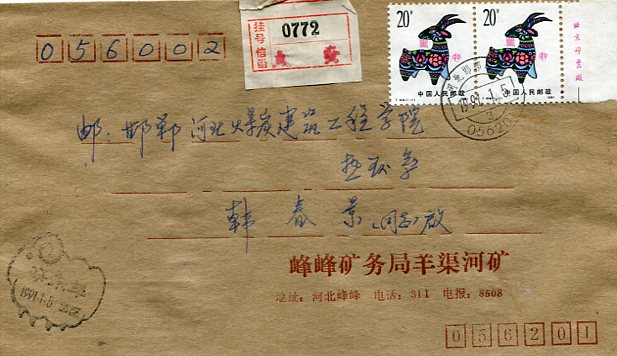 挂号
信函
0772
20分
20分
中国人民邮政
中国人民邮政
北京邮票厂
056002
1991.1.5
05620
邮:邯郸河北煤炭建筑工程学院
韩春景(同志)收
峰峰矿务局羊渠河矿
地址:河北峰峰 电话:311 电报:8508
1991.1.5
056201